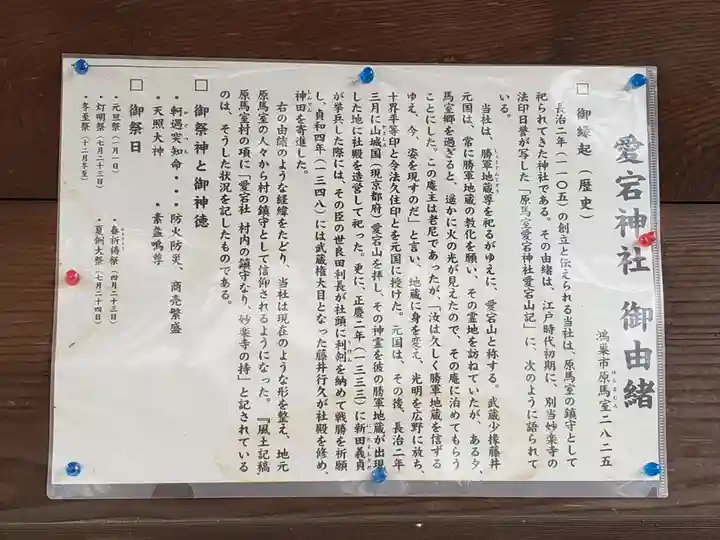 愛宕神社 御由緒
鴻巣市原馬室二八二五
はらまむろ
□ 御縁起(歴史)
長治二年(一一〇五)の創立と伝えられる当社は、原馬室の鎮守として
祀られてきた神社である。その由緒は、江戸時代初期に、別当妙楽寺の
法印日誉が写した「原馬室愛宕神社愛宕山記」に、次のように語られて
いる。
当社は、勝軍地蔵尊を祀るがゆえに、愛宕山と称する。武蔵少掾藤井
元国は、常に勝軍地蔵の教化を願い、その霊地を訪ねていたが、ある夕、
馬室郷を過ぎると、遥かに火の光が見えたので、その庵に泊めてもらう
ことにした。この庵主は老尼であったが、「汝は久しく勝軍地蔵を信ずる
ゆえ、今、姿を現すのだ」と言い、地蔵に身を変え、光明を広野に放ち、
十界平等印と今法久住印とを元国に授けた。元国は、その後、長治二年
三月に山城国(現京都府)愛宕山を拝し、その神霊を彼の勝軍地蔵が出現
した地に社殿を造営して祀った。更に、正慶二年(一三三三)に新田義貞
が挙兵した際には、その臣の世良田利長が社頭に利剣を納めて戦勝を祈願
し、貞和四年(一三四八)には武蔵権大目となった藤井行久が社殿を修め、
神田を寄進した。
右の由緒のような経緯をたどり、当社は現在のような形を整え、地元
原馬室の人々から村の鎮守として信仰されるようになった。『風土記稿』
原馬室村の項に「愛宕社 村内の鎮守なり、妙楽寺の持」と記されている
のは、そうした状況を記したものである。
□ 御祭神と御神徳
・軻遇突知命・・・防火防災、商売繁盛
・天照大神 ・素盞嗚尊
□ 御祭日
・元旦祭(一月一日) ・春祈祷祭(四月二十三日)
・灯明祭(七月二十三日) ・夏例大祭(七月二十四日)
・冬至祭(十二月冬至)